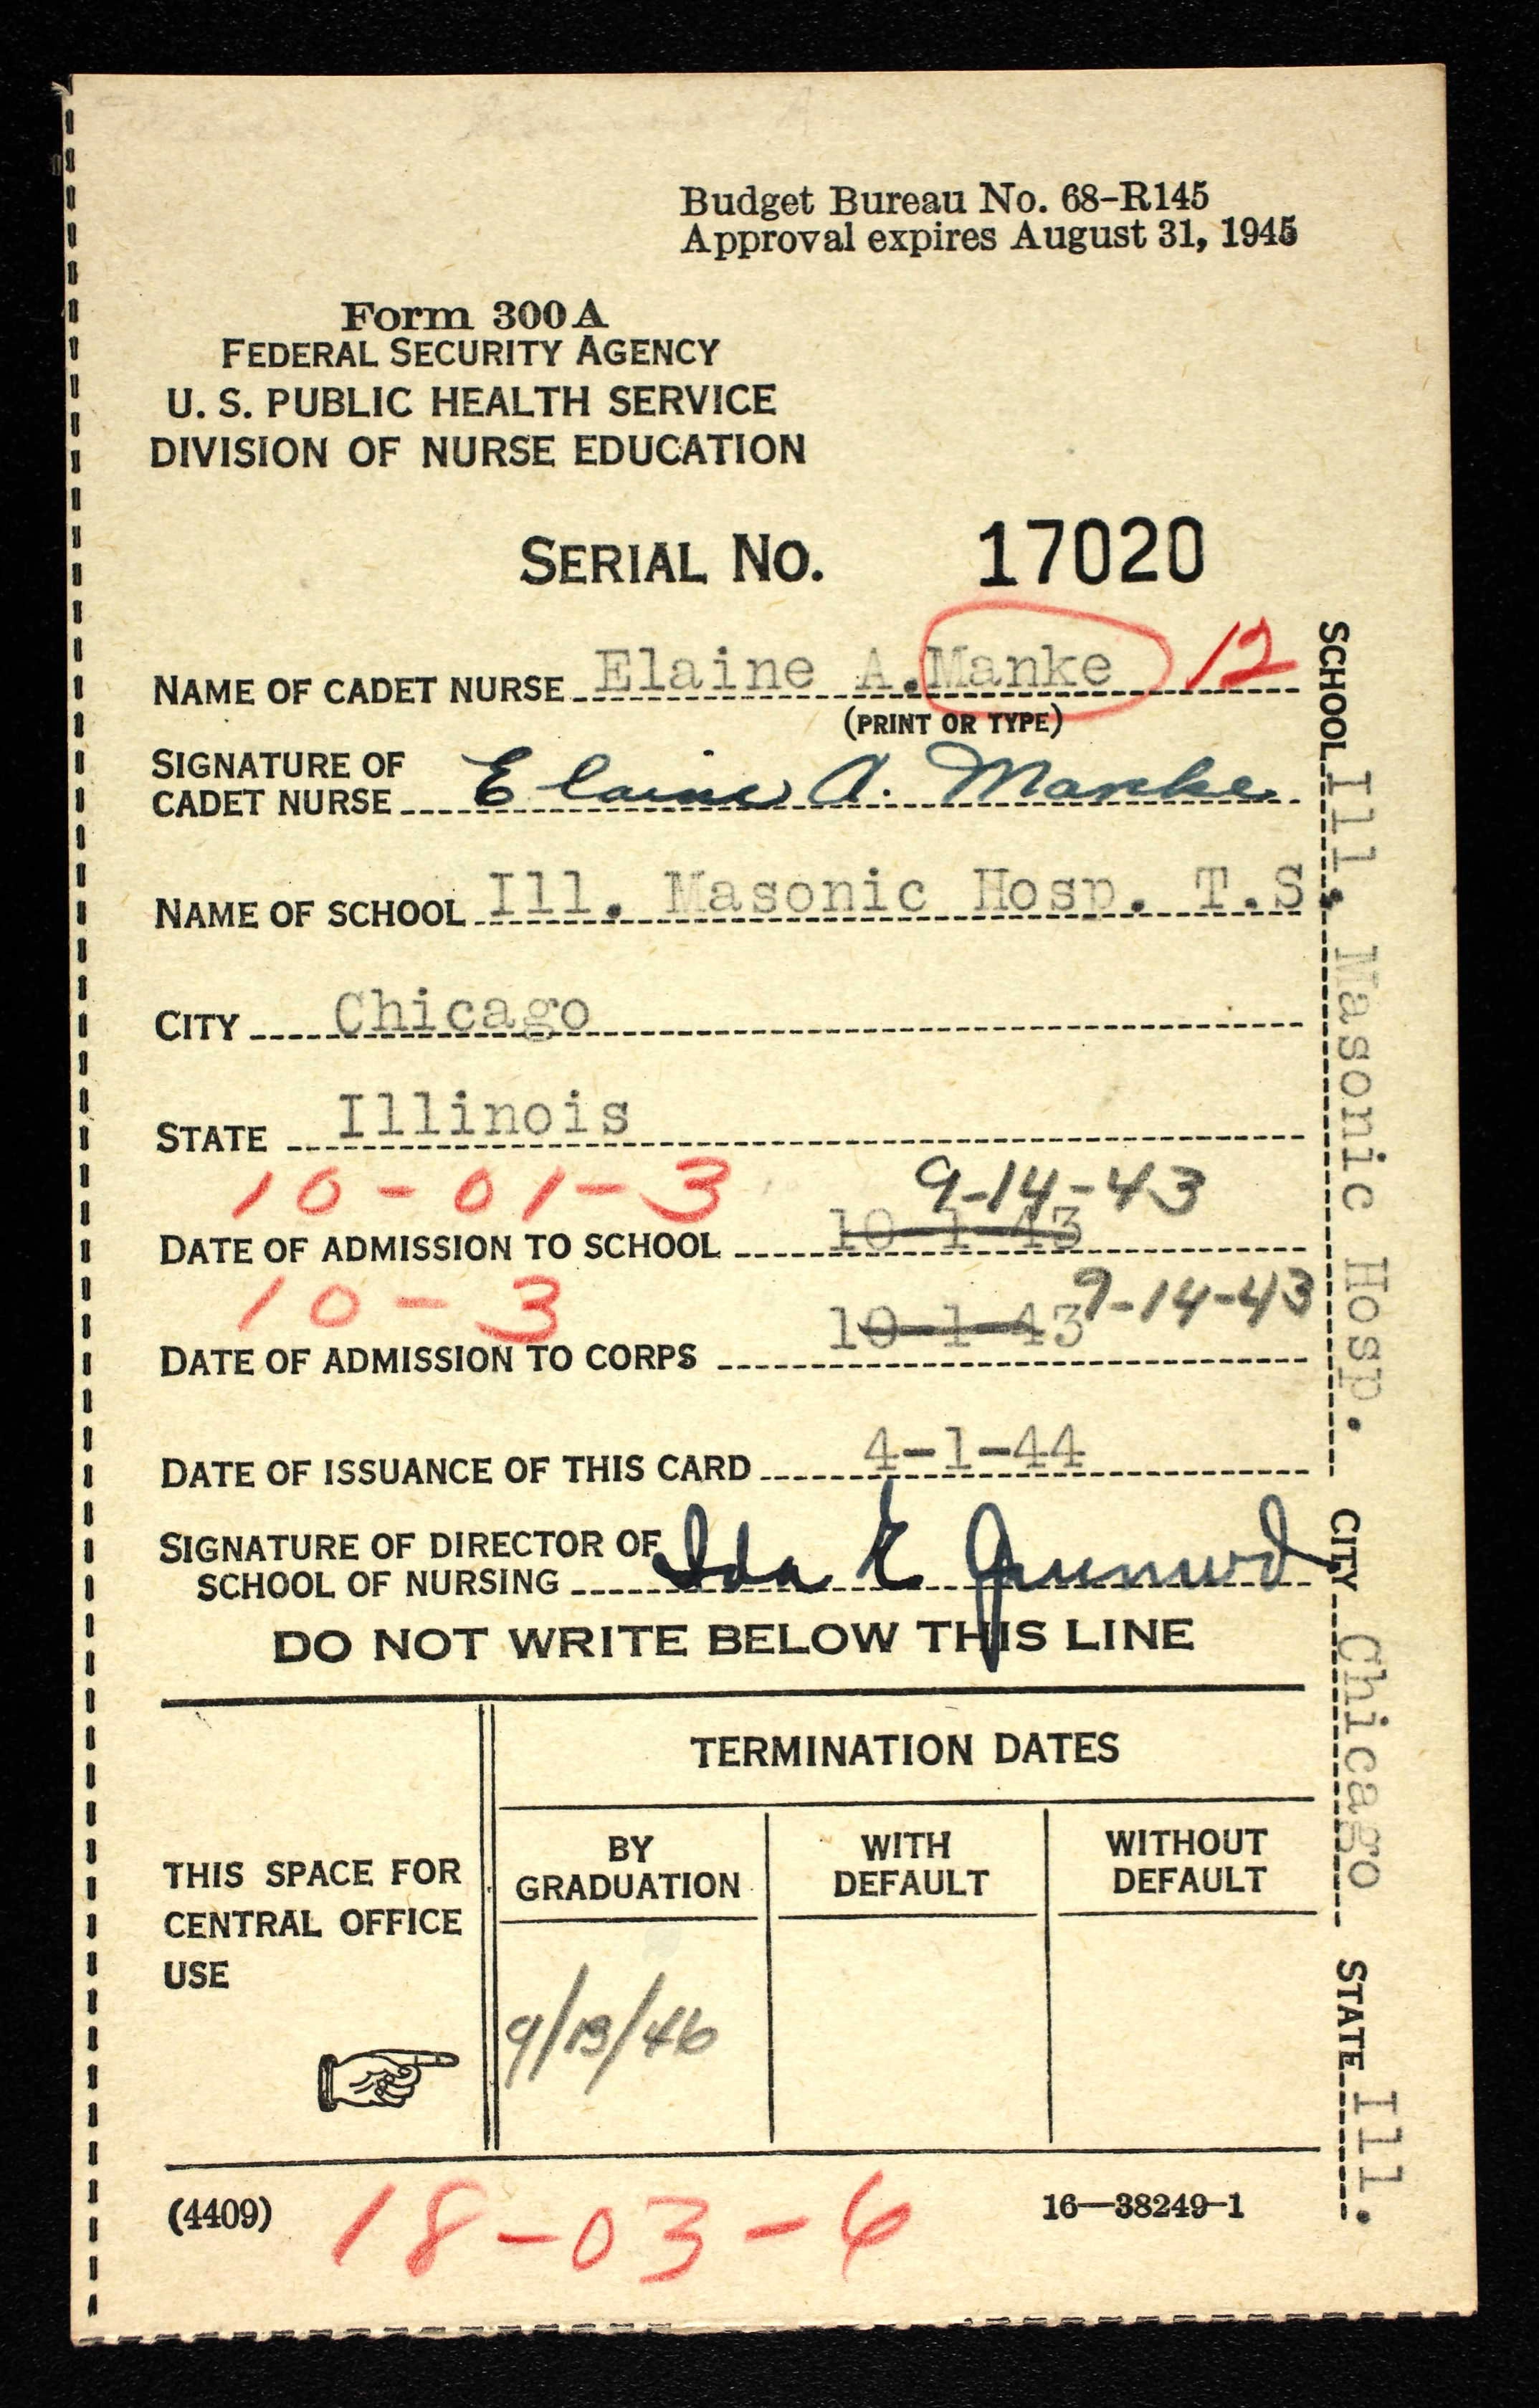 Budget Bureau No. 68-R145
Approval expires August 31, 1945
Form 300A
FEDERAL SECURITY AGENCY
U. S. PUBLIC HEALTH SERVICE
DIVISION OF NURSE EDUCATION
SERIAL NO. 17020
NAME OF CADET NURSE Elaine A. Manke 12
(PRINT OR TYPE)
SIGNATURE OF
CADET NURSE Elaine A. Manke
NAME OF SCHOOL Ill. Masonic Hosp. T.S.
CITY Chicago
STATE Illinois
10-01-3 9-14-43
DATE OF ADMISSION TO SCHOOL 10-1-43
10-3 9-14-43
DATE OF ADMISSION TO CORPS 10-1-43
DATE OF ISSUANCE OF THIS CARD 4-1-44
SIGNATURE OF DIRECTOR OF
SCHOOL OF NURSING Ida E
DO NOT WRITE BELOW THIS LINE
TERMINATION DATES
THIS SPACE FOR
CENTRAL OFFICE
USE
BY
GRADUATION
WITH
DEFAULT
WITHOUT
DEFAULT
9/13/46
(4409) 18-03-6 16—38249-1
SCHOOL Ill. Masonic Hosp. CITY Chicago STATE Ill.